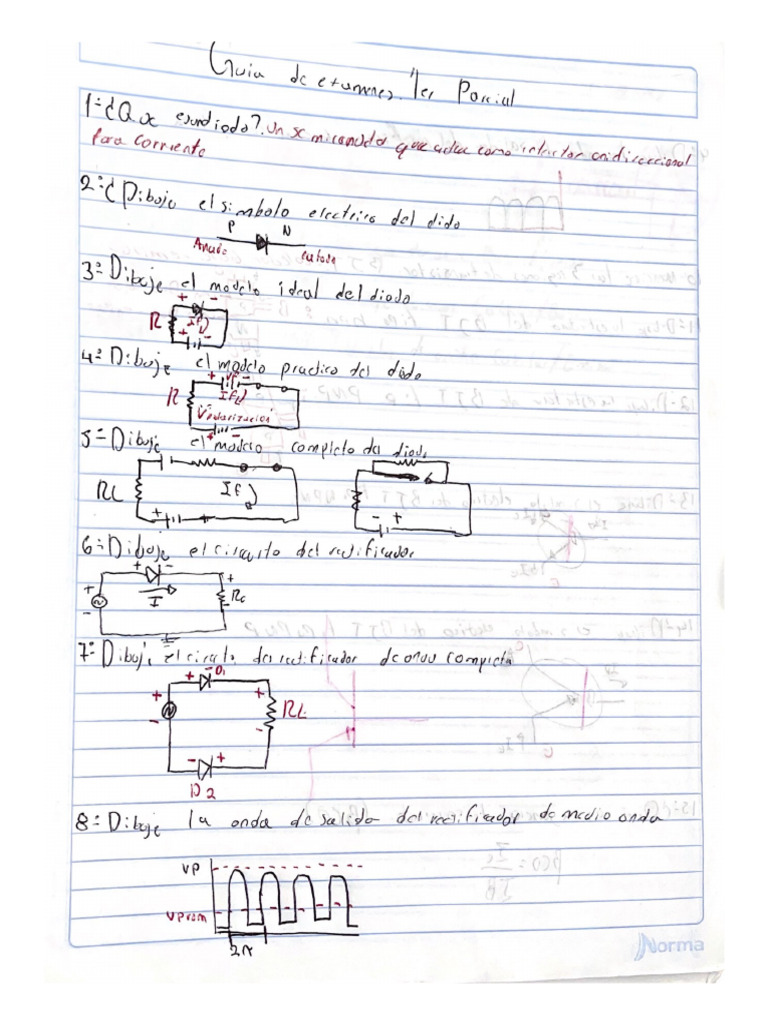 Guia de examenes 1er Parcial
1=¿Q es un diodo? Un semiconductor que actua como interruptor unidireccional
para corriente
2=¿Dibuje el simbolo electrico del diodo
P N
Anodo catodo
3=Dibuje el modelo ideal del diodo
+ -
R If
+ -
4=Dibuje el modelo practico del diodo
+ VF -
R If
Vpolarizacion
+ -
5=Dibuje el modelo completo del diodo
RL If
+ -
- +
6=Dibuje el circuito del rectificador
+ -
+ I + RL
- -
7=Dibuje el circuito del rectificador de onda completa
+ - D1
+ +
RL
- -
- +
D2
8=Dibuje la onda de salida del rectificador de medio onda
VP
VProm
2π
Norma